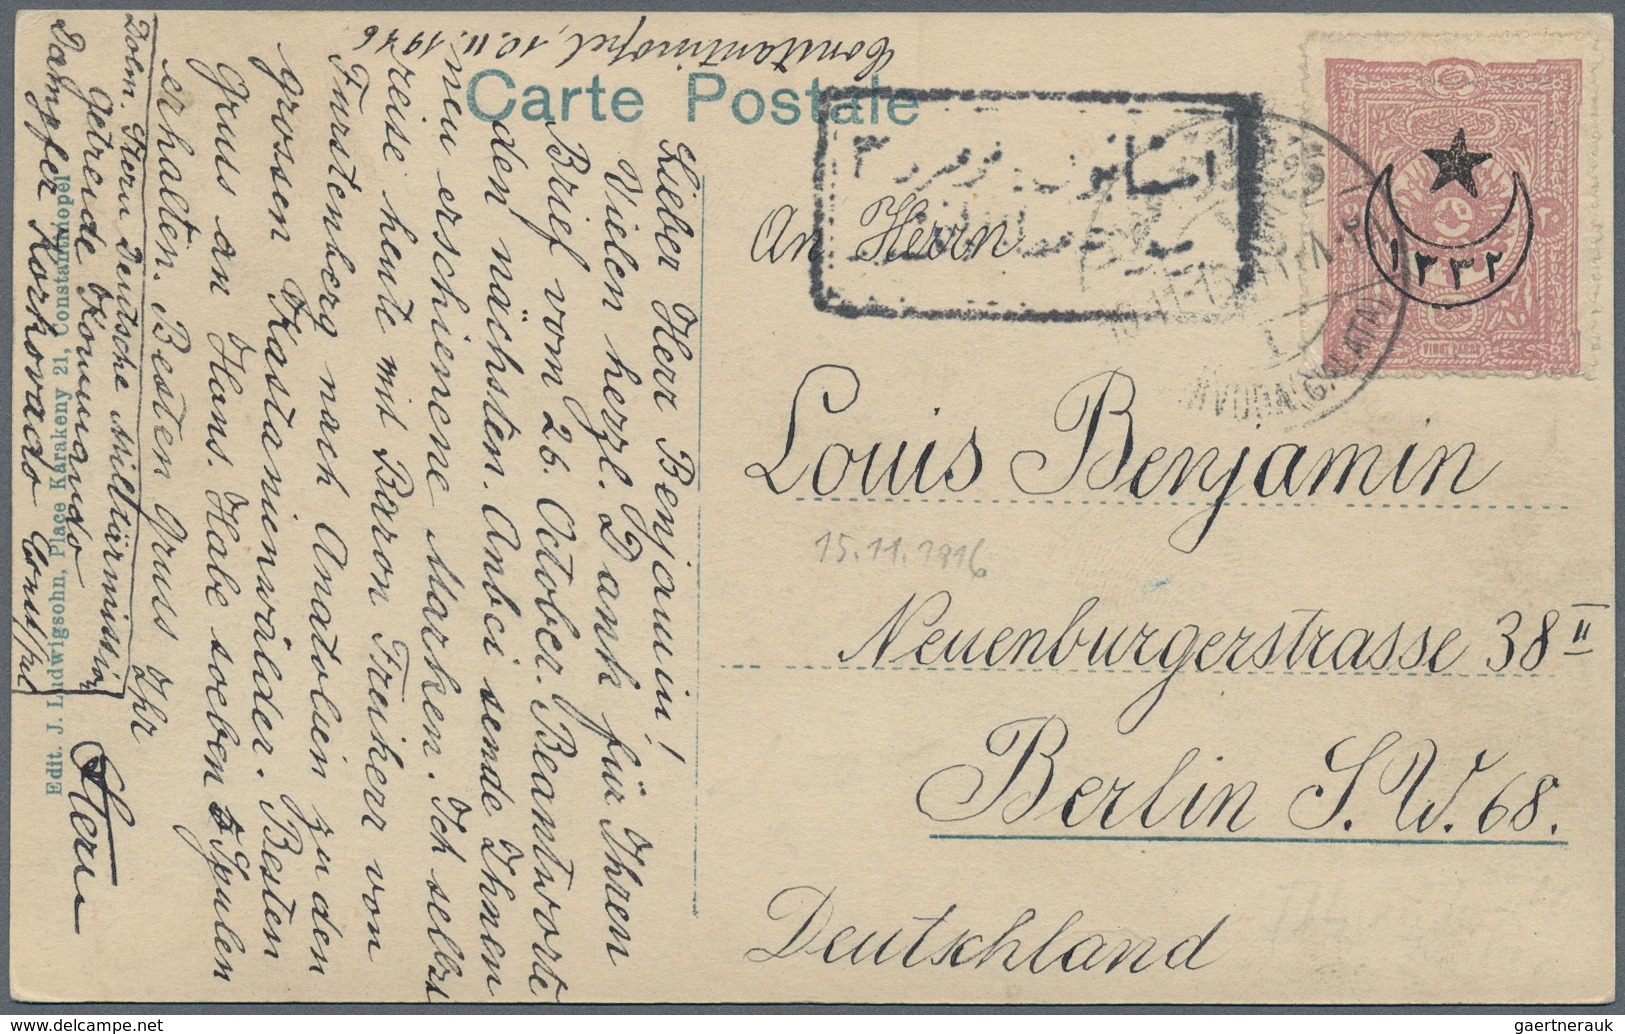 Carte Postale
Constantinopel, 10.II.1916
Lieber Herr Benjamin!
Vielen herzl. Dank für Ihren
Brief vom 26. October. Beantworte
den nächsten. Anbei sende Ihnen
neu erschienene Marken. Ich selbst
reise heute mit Baron Freiherr von
Fürstenberg nach Anatolien zu den
grossen Kastanienwälder. Besten
Grus an Hans. Habe soeben 5 Spulen
erhalten. Besten Grus Ihr
Stern
Dolm. Stern Deutsche Militärmission
Getreide Kommando
Dampfer Korkovado Const/pel
Edit. J. Ludwigsohn, Place Karakeny 21, Constantinopel
استانبول
١٣٣٢
VINGT PARAS
(GALATA)
An Herrn
Louis Benjamin
15.11.1916
Neuenburgerstrasse 38 II
Berlin S.W. 68.
Deutschland
gaertnerauk